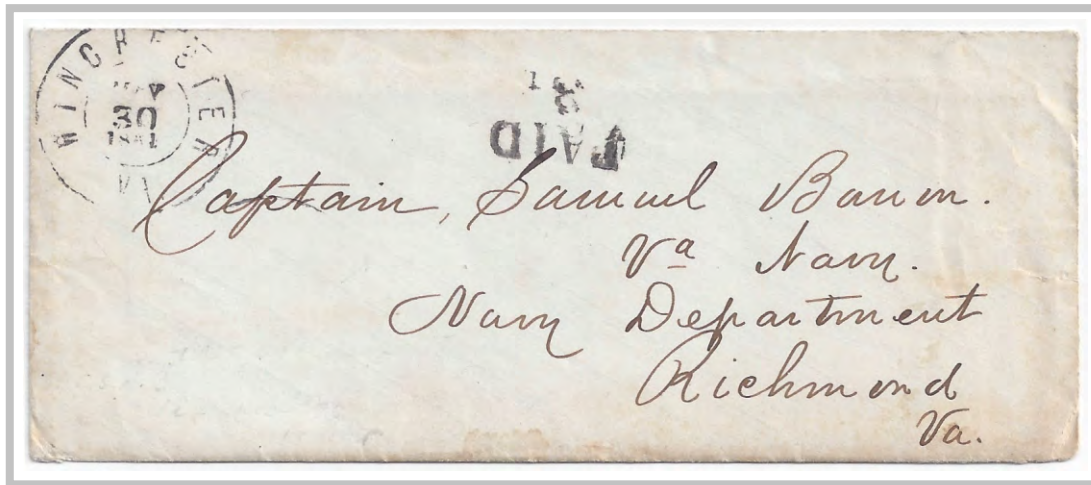 WINCHESTER
30
1861
VA
PAID
Captain, Samuel Barron.
Va Navy.
Navy Department
Richmond
Va.